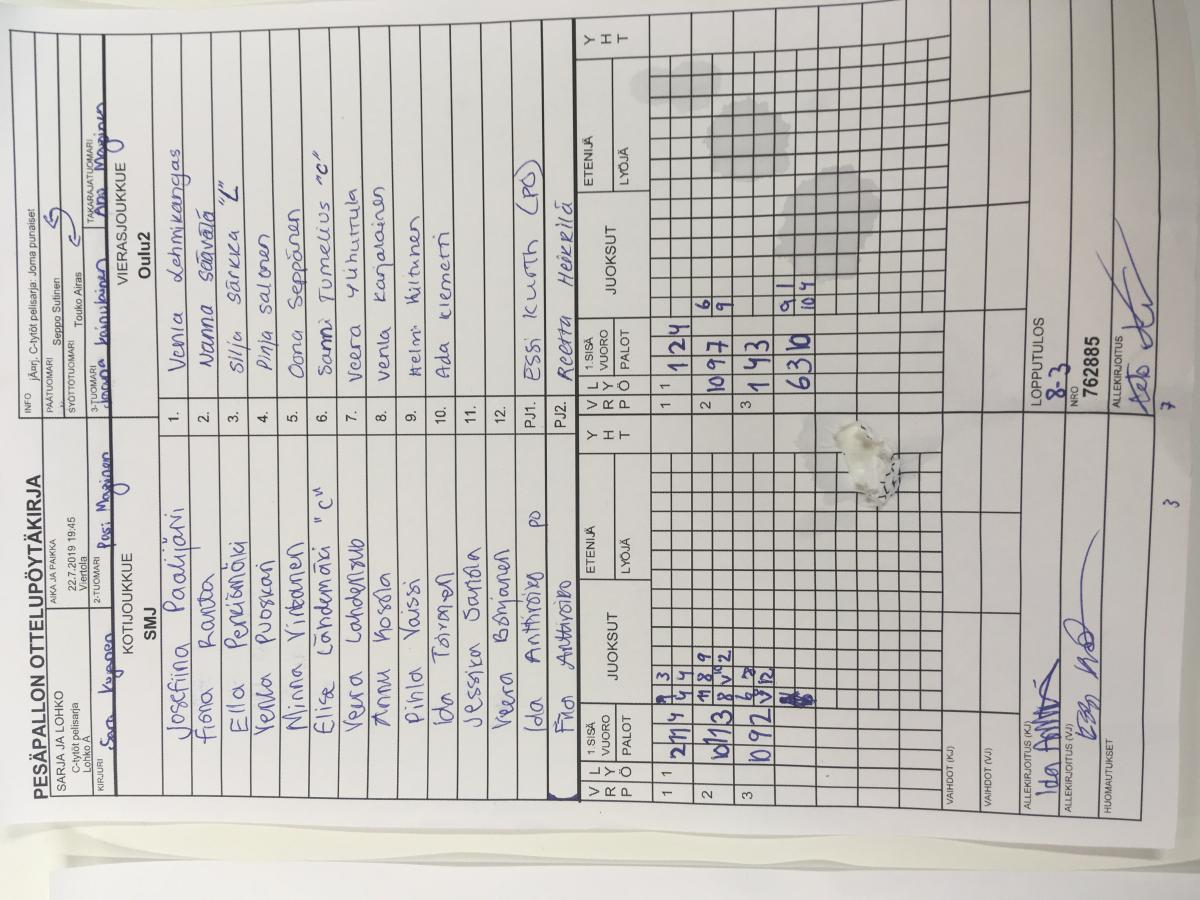 PESÄPALLON OTTELUPÖYTÄKIRJA
SARJA JA LOHKO
C-tytöt pelisarja
Lohko A
AIKA JA PAIKKA
22.7.2019 19:45
Viertola
INFO
jÄarj. C-tytöt pelisarja: Joma punaiset
PÄÄTUOMARI
Seppo Sutinen
SYÖTTÖTUOMARI
Touko Airas
KIRJURI
2-TUOMARI
Pasi Marjinen
3-TUOMARI
TAKARAJATUOMARI
KOTIJOUKKUE
SMJ
VIERASJOUKKUE
Oulu2
Josefiina Paalijärvi 1. Venla Lehmikangas
Fiona Ranta 2. Nanna Säävälä
Ella Perkiömäki 3. Silja Särkkä "L"
Venla Puoskari 4. Pinja Salonen
Minna Virtanen 5. Oona Seppänen
Elisa Lähdemäki "C" 6. Sanni Tumelius "C"
Veera Lahdensuo 7. Veera Ylihuttula
Annu Kosola 8. Venla Karjalainen
Pihla Vaissi 9. Helmi Hiltunen
Ida Toivonen 10. Ada Klemetti
Jessika Sanola 11.
Veera Börjanen 12.
Ida Anttiroiko PO PJ1. Essi Kurth (PO)
Anttiroiko PJ2. Reetta Heikkilä
V R P L Y Ö 1.SISÄ VUORO PALOT JUOKSUT ETENIJÄ LYÖJÄ Y H T
V R P L Y Ö 1.SISÄ VUORO PALOT JUOKSUT ETENIJÄ LYÖJÄ Y H T
1 1 2 11 4 3 4 4 1 1 1 2 4
2 10 11 3 11 8 9 8 V10 2 2 10 9 7 6 9
3 10 9 2 6 V12 3 1 4 3
6 3 10 9 1 10 4
VAIHDOT (KJ)
VAIHDOT (VJ)
ALLEKIRJOITUS (KJ)
Ida
LOPPUTULOS
8-3
ALLEKIRJOITUS (VJ)
NRO
762885
HUOMAUTUKSET
ALLEKIRJOITUS
3 7